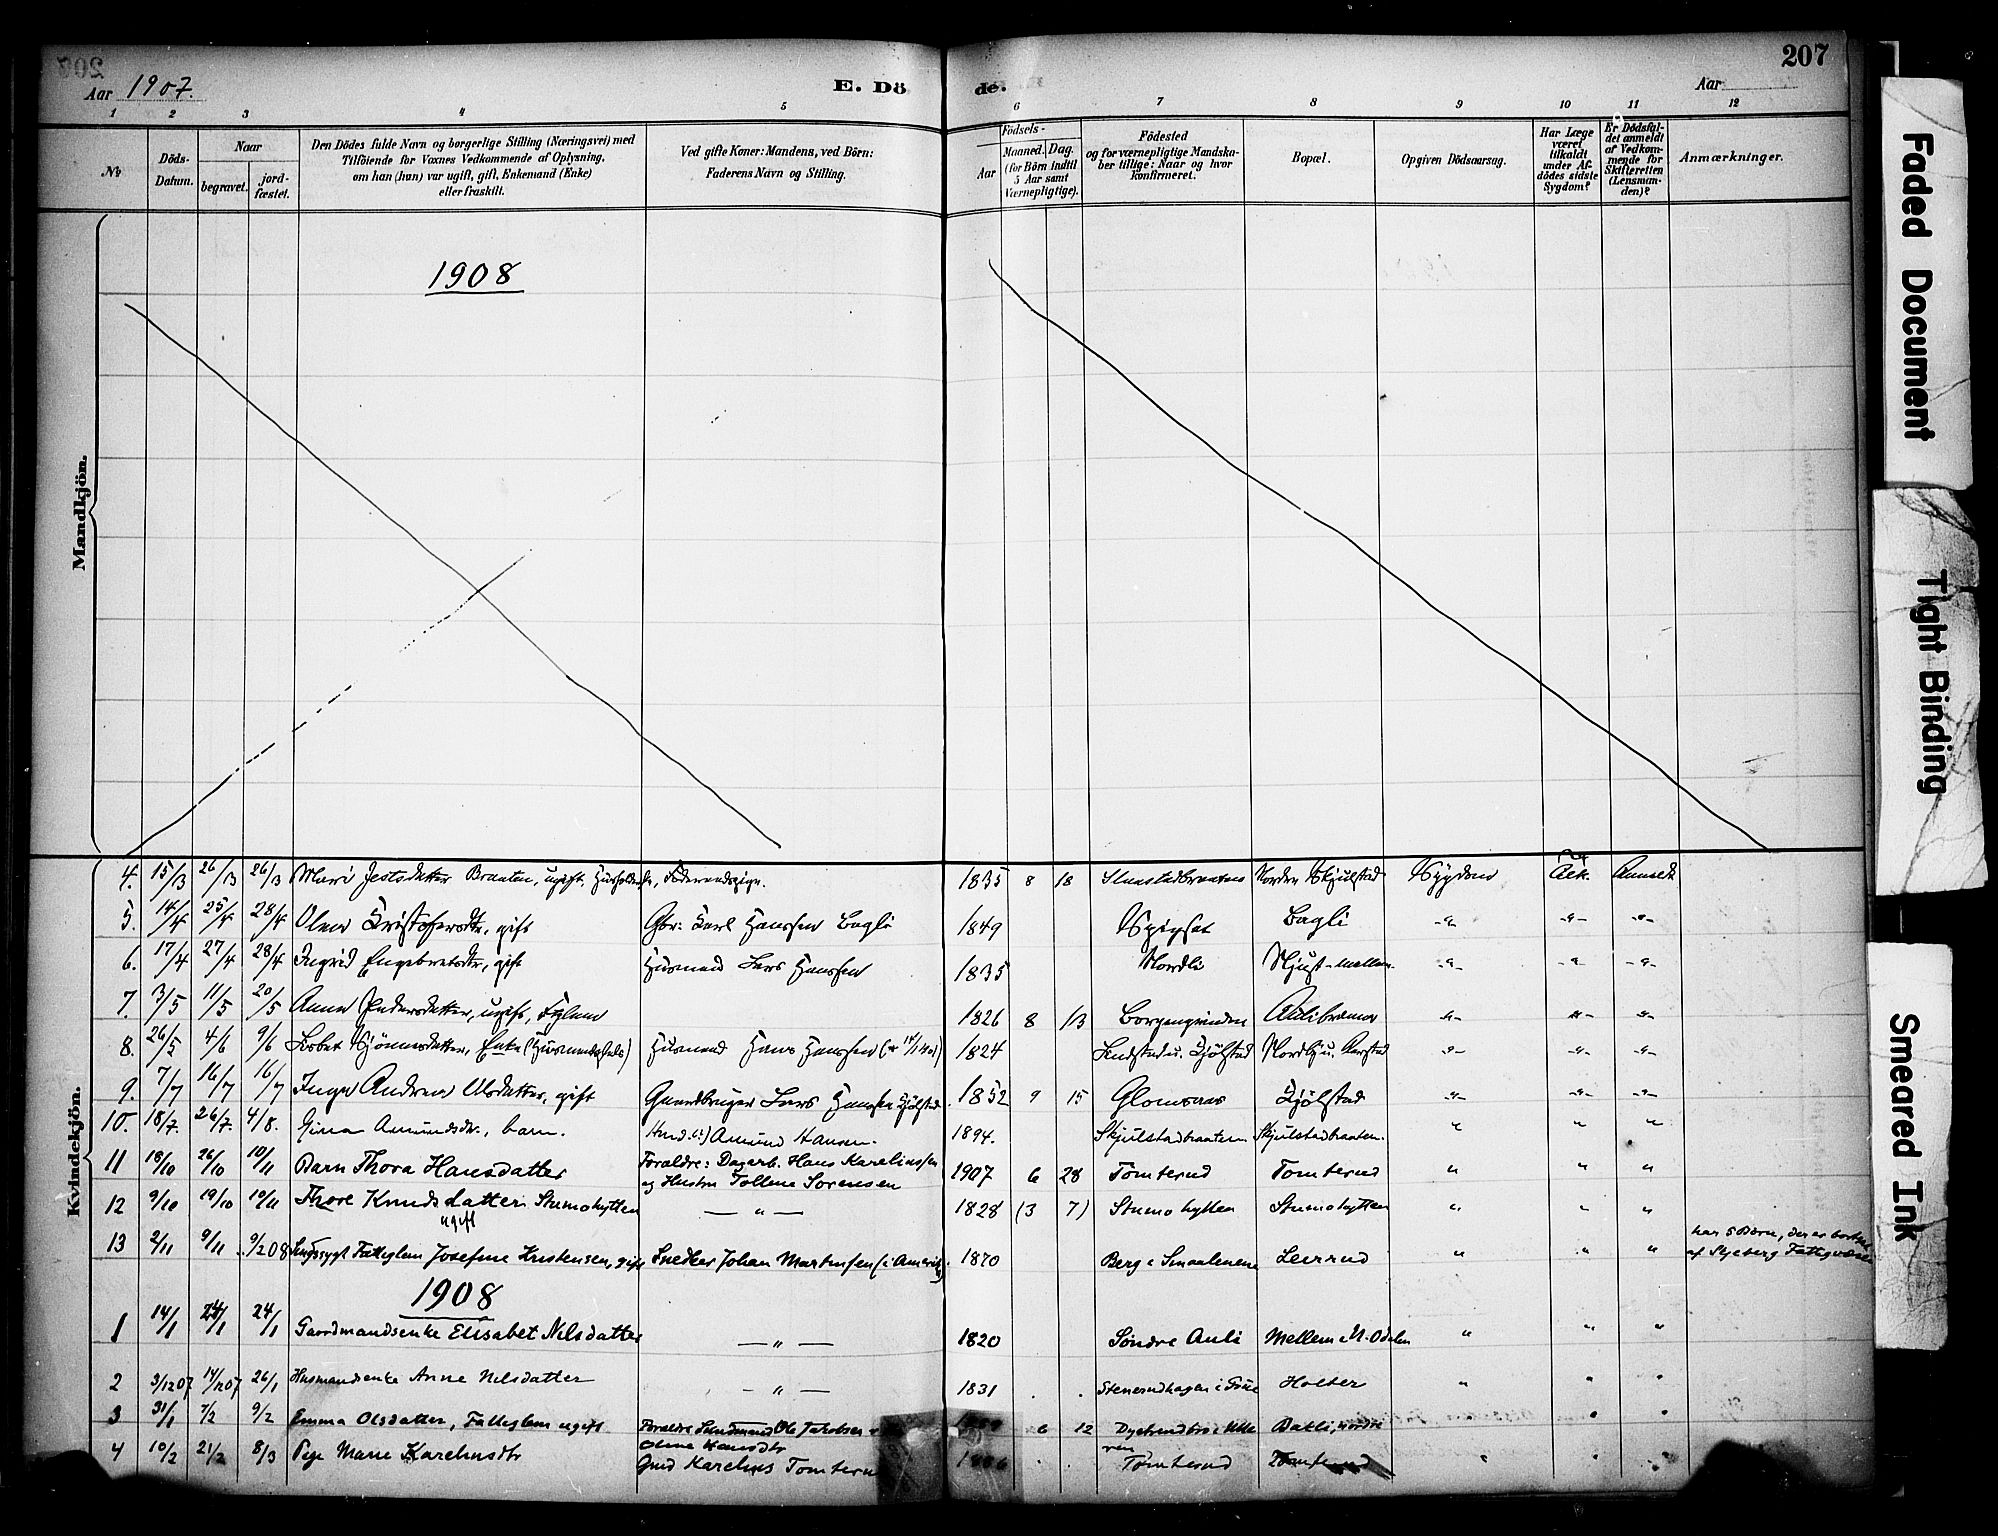 207
Aar 1907.
E. Dö
de.
Aar
1 2 3 4 5 6 7 8 9 10 11 12
No
Döds-Datum.
Naar
begravet.
jord-fæstet.
Den Dödes fulde Navn og borgerlige Stilling (Næringsvei) med
Tilföiende for Voxnes Vedkommende af Oplysning,
om han (hun) var ugift, gift, Enkemand (Enke)
eller fraskilt.
Ved gifte Koner: Mandens, ved Börn:
Faderens Navn og Stilling.
Födsels-
Aar
Maaned. Dag.
(for Börn indtil
5 Aar samt
Værnepligtige).
Födested
og for værnepligtige Mandska-
ber tillige: Naar og hvor
konfirmeret.
Bopæl.
Opgiven Dödsaarsag.
Har Læge
været
tilkaldt
under Af-
dödes sidste
Sygdom?
Er Dödsfal-
det anmeldt
af Vedkom-
mende for
Skifteretten
(Lensman-
den)?
Anmærkninger.
Mandkjön.
1908
Kvindekjön.
4. 15/3 26/3 26/3 Mari Braaten, ugift, 1835 8 18 Sygdom Anmeldt
5. 14/4 25/4 28/4 Olea Kristofersdtr, gift Gbr: Karl Hanssen Bagli 1849 Bagli -"- -"- -"-
6. 17/4 27/4 28/4 Ingrid Engebretsdtr, gift Husmand Lars Hanssen 1835 Nordli -"- -"- -"-
7. 3/5 11/5 20/5 Anna Pedersdatter, ugift, 1826 8 13 -"- -"- -"-
8. 26/5 4/6 9/6 Enke Husmand Hans Hanssen 1824 -"- -"- -"-
9. 7/7 16/7 16/7 Inga Andrea Olsdatter, gift Gaardbruger Lars Hanssen Kjölstad. 1852 9 15 Glomsaas Kjölstad -"- -"- -"-
10. 18/7. 26/7. 4/8. Gina Amundsdtr., barn. Amund Hansen. 1894. Skjulstadbraaten. Skjulstadbraaten. " " "
11 18/10 26/10 10/11 Barn Thora Hansdatter Foraldre: Dagarb. Hans Karelinssen
og Hustru Tolline Sorensen 1907 6 28 Tomterud Tomterud " " "
12 9/10 19/10 10/11 Thore Knudsdatter Stumohytten
ugift — " — 1828 (3 7) Stumohytten Stumohytten " " "
13 2/11 9/11 9/2 08 Sindssygt Fatteglem Josefine Kristensen, gift Snedker Johan Martinsen (i Amerika). 1870 Berg i Smaalenene Leirrud " " " har 5 Börn, der er bortsat
af Skjeberg Fattigvæsen
1908
1 14/1 24/1 24/1 Gaardmandsenke Elisabet Nilsdatter — " — 1820 Söndre Auli Mellem i N. Odalen " " "
2 3/12 07 14/12 07 26/1 Husmandsenke Anne Nilsdatter — " — 1831 . . Holter " " "
3 31/1 7/2 9/2 Emma Olsdatter, Fatteglem ugift Foraldre Ole Jakobsen
Oline Hansdtr 6 12 " "
4 10/2 21/2 8/3 Pige Marie Karelinsdtr Gmd Karelius Tomterud Tomterud Tomterud " " "
Faded Document
Tight Binding
Smeared Ink